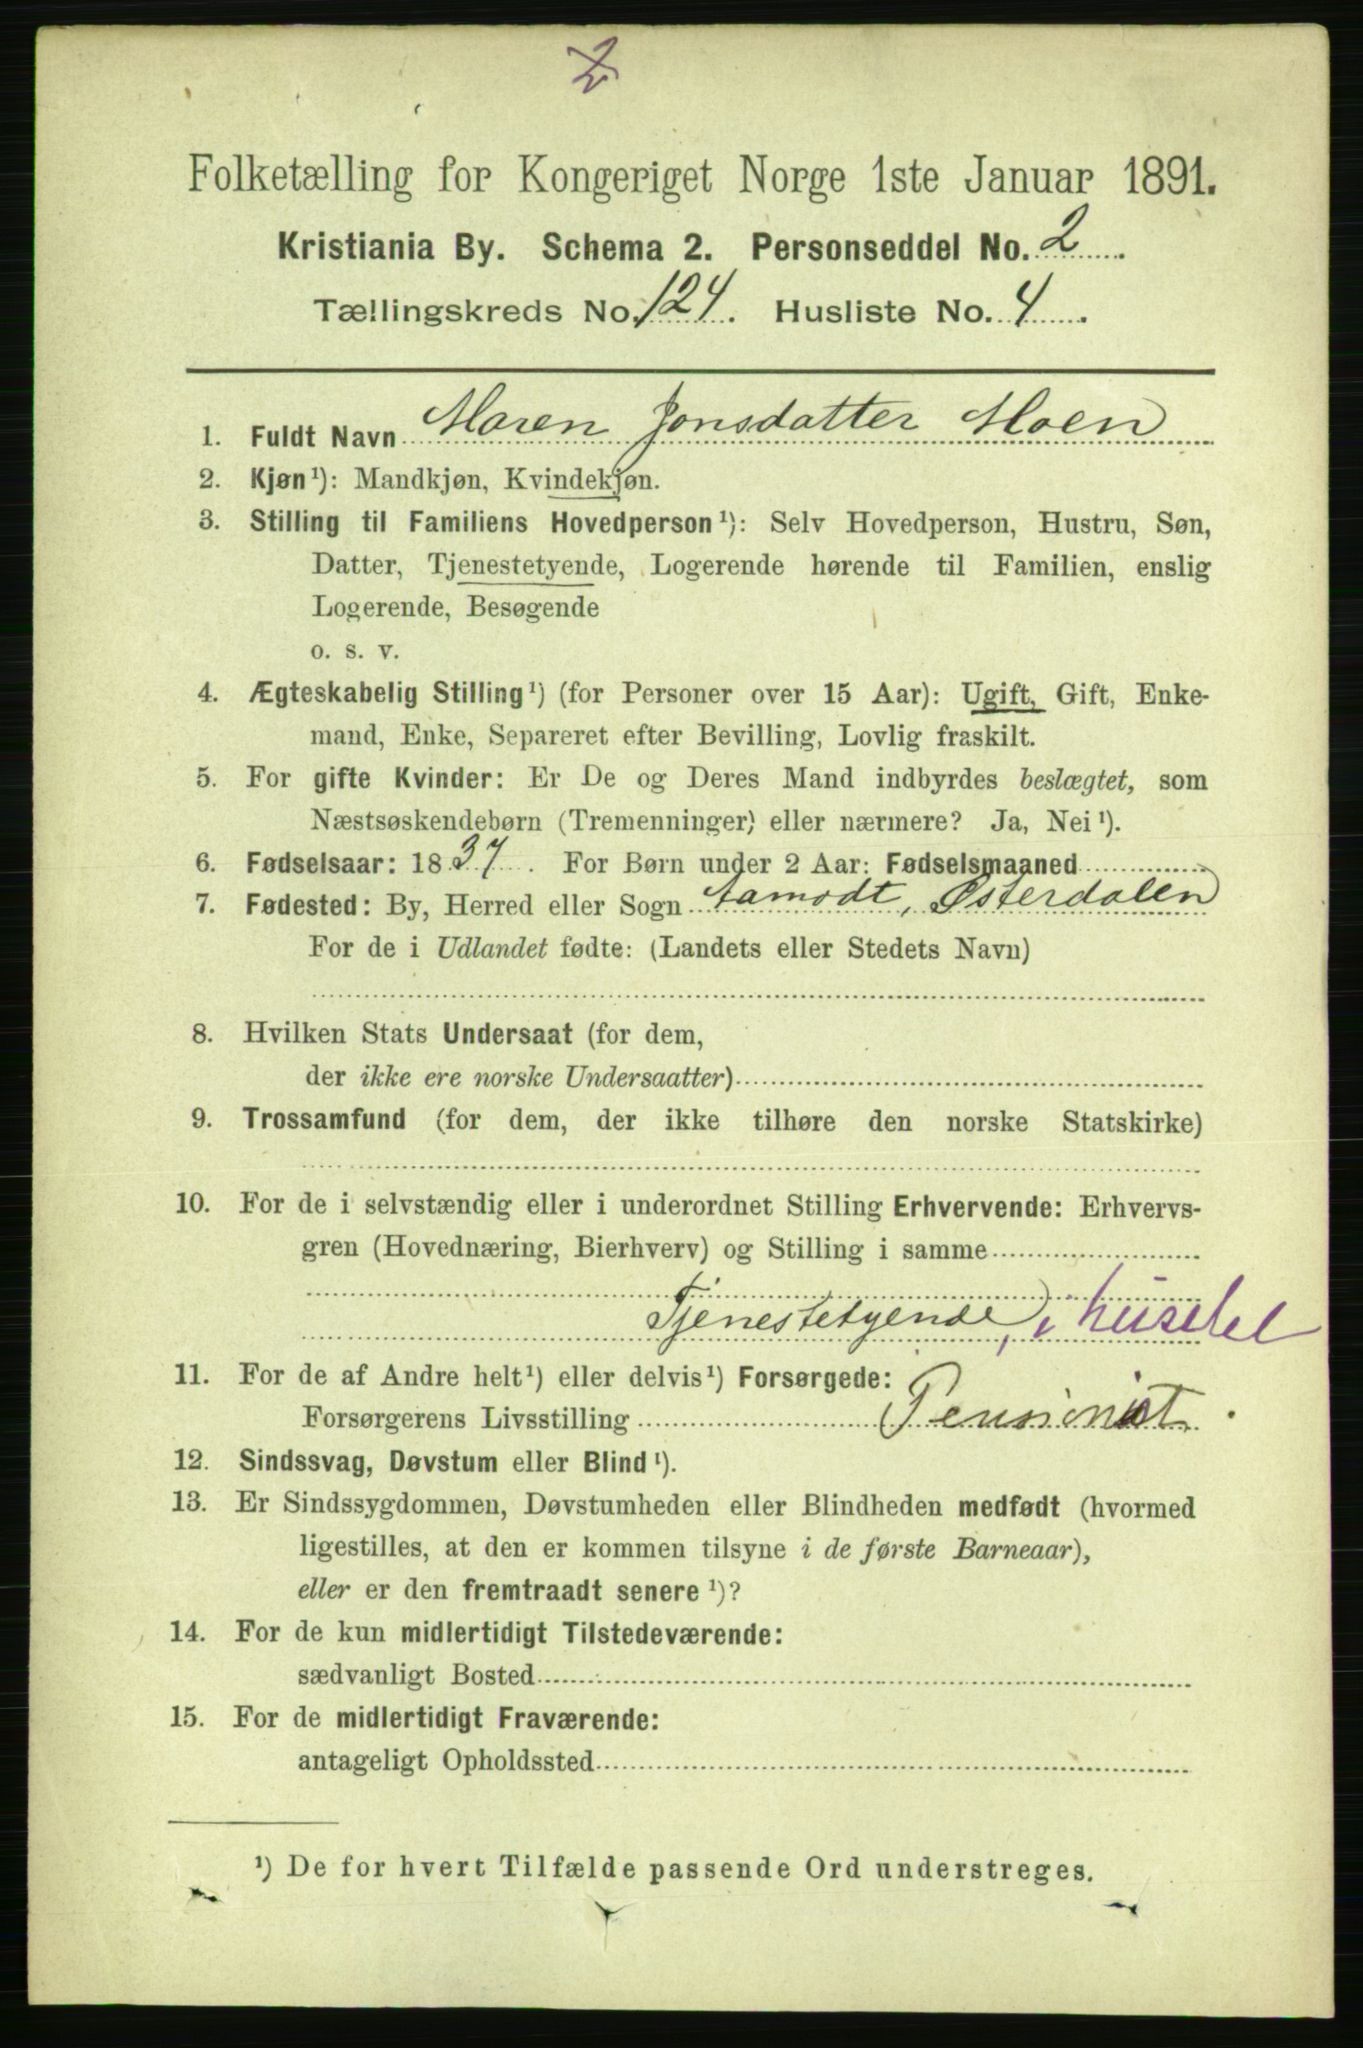 2
Folketælling for Kongeriget Norge 1ste Januar 1891.
Kristiania By. Schema 2. Personseddel No. 2
Tællingskreds No. 124. Husliste No. 4.
1. Fuldt Navn Maren Jonsdatter Moen
2. Kjøn¹): Mandkjøn, Kvindekjøn.
3. Stilling til Familiens Hovedperson¹): Selv Hovedperson, Hustru, Søn,
Datter, Tjenestetyende, Logerende hørende til Familien, enslig
Logerende, Besøgende
o. s. v.
4. Ægteskabelig Stilling¹) (for Personer over 15 Aar): Ugift, Gift, Enke-
mand, Enke, Separeret efter Bevilling, Lovlig fraskilt.
5. For gifte Kvinder: Er De og Deres Mand indbyrdes beslægtet, som
Næstsøskendebørn (Tremenninger) eller nærmere? Ja, Nei¹).
6. Fødselsaar: 1837. For Børn under 2 Aar: Fødselsmaaned
7. Fødested: By, Herred eller Sogn Aamodt, Østerdalen
For de i Udlandet fødte: (Landets eller Stedets Navn)
8. Hvilken Stats Undersaat (for dem,
der ikke ere norske Undersaatter)
9. Trossamfund (for dem, der ikke tilhøre den norske Statskirke)
10. For de i selvstændig eller i underordnet Stilling Erhvervende: Erhvervs-
gren (Hovednæring, Bierhverv) og Stilling i samme
Tjenestetyende, i huset
11. For de af Andre helt¹) eller delvis¹) Forsørgede:
Forsørgerens Livsstilling Pensionist.
12. Sindssvag, Døvstum eller Blind¹).
13. Er Sindssygdommen, Døvstumheden eller Blindheden medfødt (hvormed
ligestilles, at den er kommen tilsyne i de første Barneaar),
eller er den fremtraadt senere¹)?
14. For de kun midlertidigt Tilstedeværende:
sædvanligt Bosted
15. For de midlertidigt Fraværende:
antageligt Opholdssted
¹) De for hvert Tilfælde passende Ord understreges.